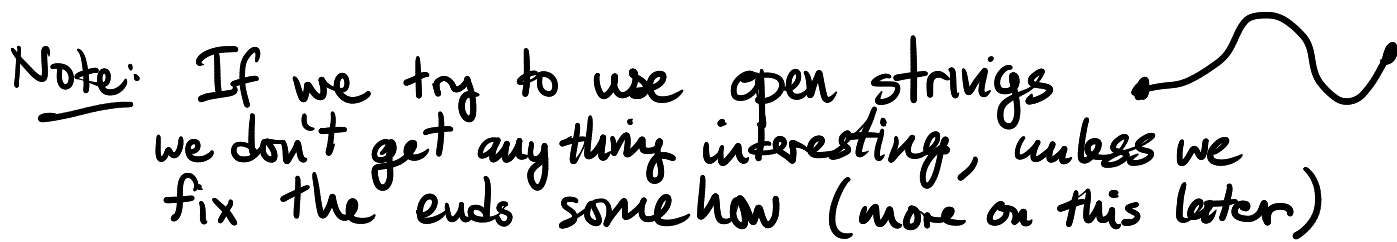 Note: If we try to use open strings
we don't get anything interesting, unless we
fix the ends somehow (more on this later)